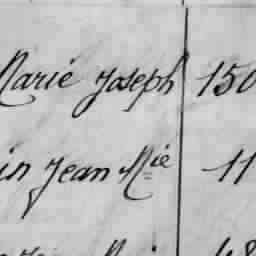 Marie Joseph 150
in Jean Mie 11